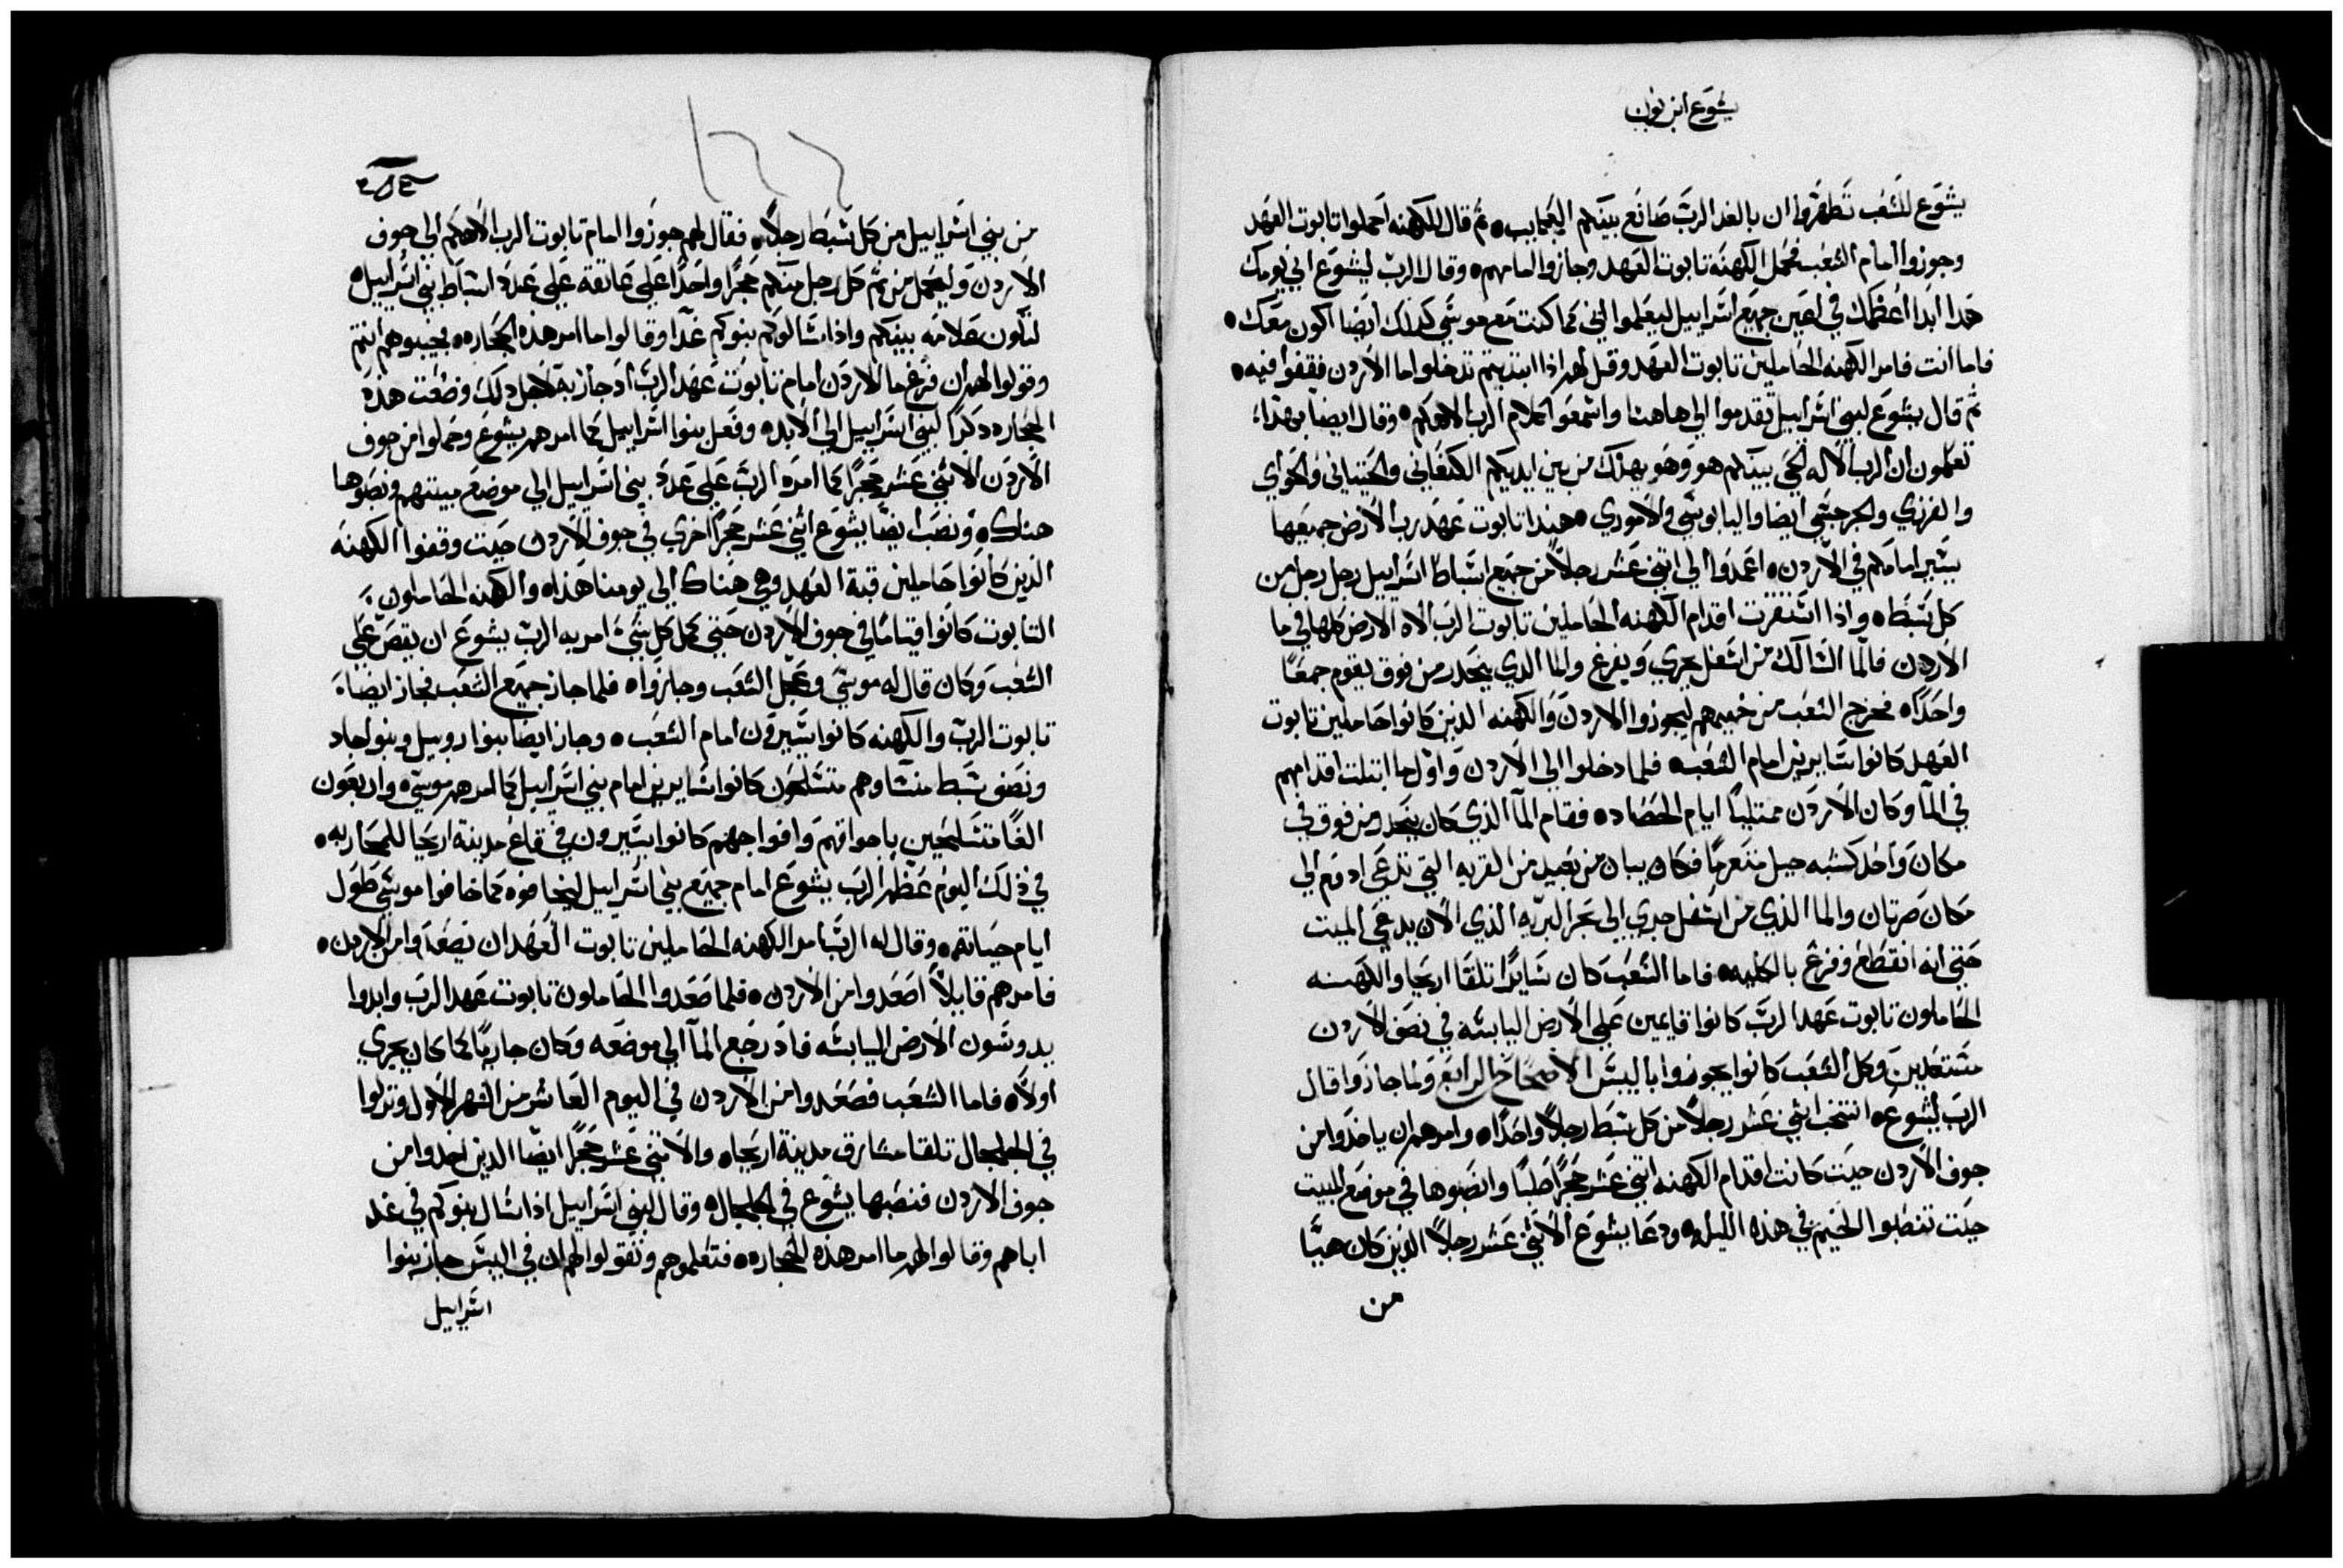 يشوع ابن نون
يشوع للشعب تطهروا ان بالغد الرب صانع بينكم العجايب ثم قال للكهنه احملوا تابوت العهد
وجوزوا امام الشعب فحمل الكهنه تابوت العهد وجازوا امامهم وقال الرب ليشوع اني يومك
هدا ابدا اعظمك في اعين جميع اسراييل ليعلموا اني كما كنت مع موسي كدلك ايضا اكون معك
فاما انت فامر الكهنه الحاملين تابوت العهد وقل لهم اذا ابتديتم تدخلوا ما الاردن فقفوا فيه
ثم قال يشوع لبني اسراييل تقدموا الي هاهنا واسمعوا كلام الرب الاهكم وقال ايضا بهدا
تعلمون ان الرب الاله الحي بينكم هو وهو يهلك من بين ايديكم الكنعاني والحيتاني والحواي
والفرزي والجرجسي ايضا واليابوسي والاموري هندا تابوت عهد رب الارض جميعها
يسير امامكم في الاردن اعمدوا الي اتني عشر رجلا من جميع اسباط اسراييل رجل رجل من
كل سبط واذا استقرت اقدام الكهنه الحاملين تابوت الرب الاه الارض كلها في ما
الاردن فالما السالك من اسفل يجري ويفرغ والما الدي ينحدر من فوق يقوم جمعا
واحدا فخرج الشعب من خيمهم ليجوزوا الاردن والكهنه الدين كانوا حاملين تابوت
العهد كانوا سايرين امام الشعب فلما دخلوا الي الاردن واول ما ابتلت اقدامهم
في الما وكان الاردن ممتليا ايام الحصاد فقام الما الذي كان ينحدر من فوق في
مكان واحد كشبه جبل متعرما فكان يبان من بعيد من القريه التي تدعي ادوم الي
مكان صرتان والما الذي من اسفل جري الي بحر البريه الذي الان يدعي الميت
حتي انه انقطع وفرغ بالكليه فاما الشعب كان سايرا تلقا اريحا والكهنه
الحاملون تابوت عهد الرب كانوا قايمين علي الارض اليابسه في نصف الاردن
مستعدين وكل الشعب كانوا يجوزوا باليبس الاصحاح الرابع ولما جازوا قال
الرب ليشوع انتخب اثني عشر رجلا من كل سبط رجلا واحدا وامرهم ان ياخدوا من
جوف الاردن حيت كانت اقدام الكهنه اتني عشر حجرا صلبا وانصبوها في موضع المبيت
حيت تنصبوا الخيم في هذه الليله ودعا يشوع الاثني عشر رجلا الذين كان هيا
من
من بني اسراييل من كل سبط رجلا فقال لهم جوزوا امام تابوت الرب الاهكم الي جوف
الاردن وليحمل من ثم كل رجل منكم حجرا واحدا علي عاتقه علي عدد اسباط بني اسراييل
لتكون علامه بينكم واذا سالوكم بنوكم غدا وقالوا ما امر هذه الحجاره فجيبوهم انتم
وقولوا لهم ان فرغ ما الاردن امام تابوت عهد الرب اد جاز به لاجل دلك وضعت هذه
الحجاره دكرا لبني اسراييل الي الابد وفعل بنوا اسراييل كما امرهم يشوع وحملوا من جوف
الاردن الاثني عشر حجرا كما امره الرب علي عدد بني اسراييل الي موضع مبيتهم ونصبوها
هناك ونصب ايضا يشوع اثني عشر حجرا اخري في جوف الاردن حيت وقفوا الكهنه
الذين كانوا حاملين قبة العهد وهي هناك الي يومنا هذا والكهنه الحاملون
التابوت كانوا قياما في جوف الاردن حتي كمل كل شي امر به الرب يشوع ان يقص علي
الشعب وكان قال له موسي وعجل الشعب وجازوا فلما جاز جميع الشعب فجاز ايضا
تابوت الرب والكهنه كانوا يسيرون امام الشعب وجاز ايضا بنوا روبيل وبنوا جاد
ونصف سبط منسا وهم متسلحون كانوا سايرين امام بني اسراييل كما امرهم موسي واربعون
الفا متسلحين باجواقهم وافواجهم كانوا يسيرون في قاع مدينة اريحا للمحاربه
في ذلك اليوم عظم الرب يشوع امام جميع بني اسراييل ليخافوه كما خافوا موسي طول
ايام حياته وقال له الرب امر الكهنه الحاملين تابوت العهد ان يصعدوا من الاردن
فامرهم قايلا اصعدوا من الاردن فلما صعدوا الحاملون تابوت عهد الرب وابدوا
يدوسون الارض اليابسه فاد رجع الما الي موضعه وكان جاريا كما كان يجري
اولا فاما الشعب فصعدوا من الاردن في اليوم العاشر من الشهر الاول ونزلوا
في الجلجال تلقا مشارق مدينة اريحا والاتني عشر حجرا ايضا الدين اخدوا من
جوف الاردن فنصبها يشوع في الجلجال وقال لبني اسراييل اذا سال بنوكم في غد
اباهم وقالوا لهم ما امر هذه الحجاره فتعلموهم وتقولوا لهم ان في اليبس جاز بنوا
اسراييل